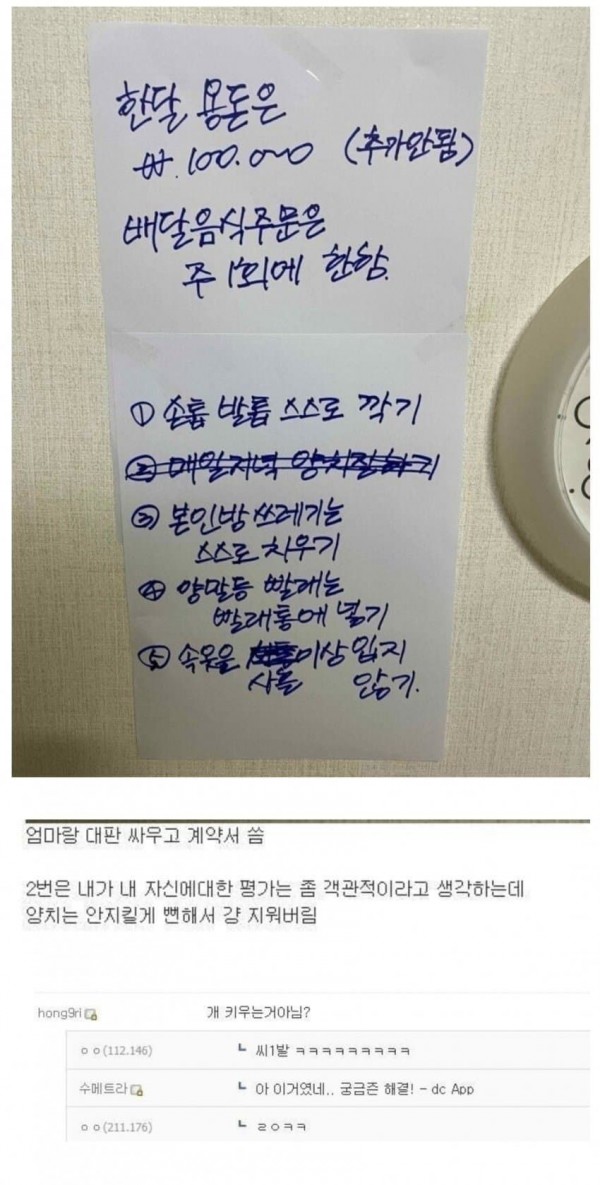 한달 용돈은
₩.100.000 (추가안됨)
배달음식주문은
주 1회에 한함.
① 손톱 발톱 스스로 깍기
② 매일저녁 양치질하기
③ 본인방 쓰레기는
스스로 치우기
④ 양말등 빨래는
빨래통에 넣기
⑤ 속옷을 이상 입지
사흘 않기.
엄마랑 대판 싸우고 계약서 씀
2번은 내가 내 자신에대한 평가는 좀 객관적이라고 생각하는데
양치는 안지킬게 뻔해서 걍 지워버림
hong9ri 개 키우는거아님?
ㅇㅇ(112.146) ㄴ 씨1발 ㅋㅋㅋㅋㅋㅋㅋㅋㅋ
수메트라 ㄴ 아 이거였네.. 궁금즌 해결! - dc App
ㅇㅇ(211.176) ㄴ ㄹㅇㅋㅋ